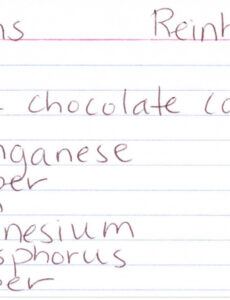 ns Reinh
chocolate (c
nganese
ber
nesium
sphorus
ber